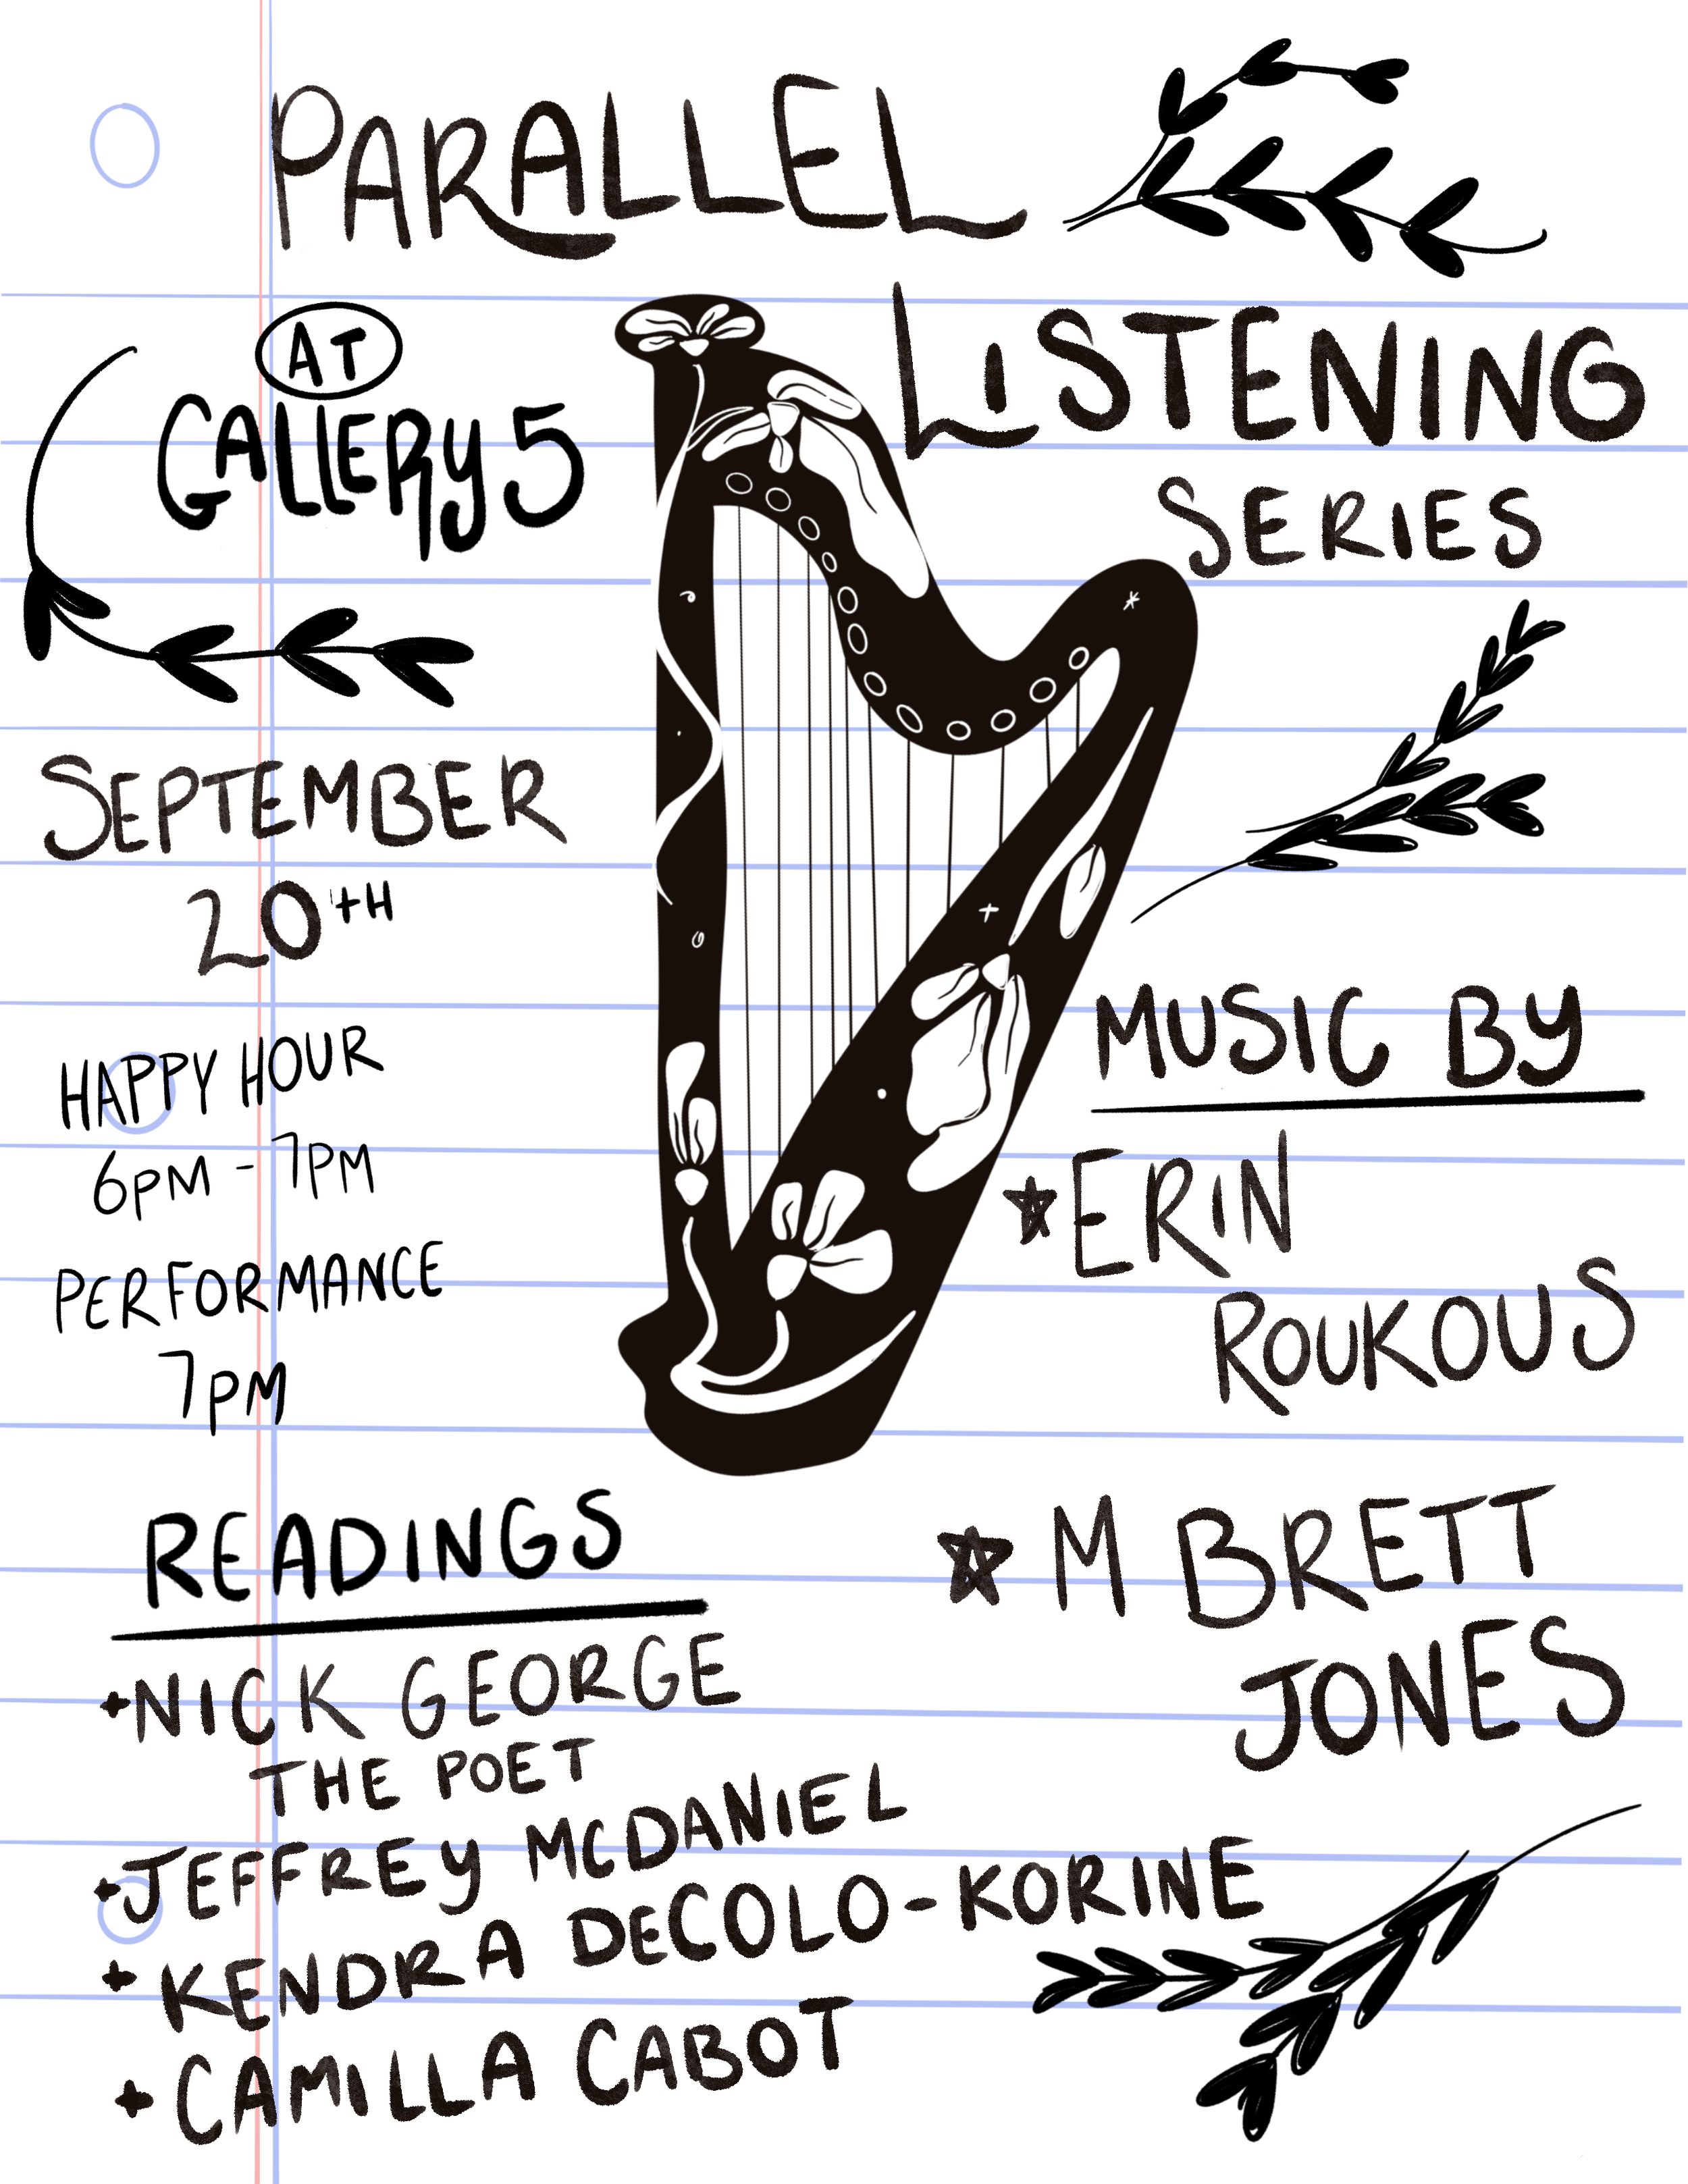 PARALLEL
LISTENING
SERIES
AT
GALLERY 5
SEPTEMBER
20TH
HAPPY HOUR
6PM - 7PM
PERFORMANCE
7PM
MUSIC BY
ERIN
ROUKOUS
M BRETT
JONES
READINGS
NICK GEORGE
THE POET
JEFFREY MCDANIEL
KENDRA DeCOLO-KORINE
CAMILLA CABOT